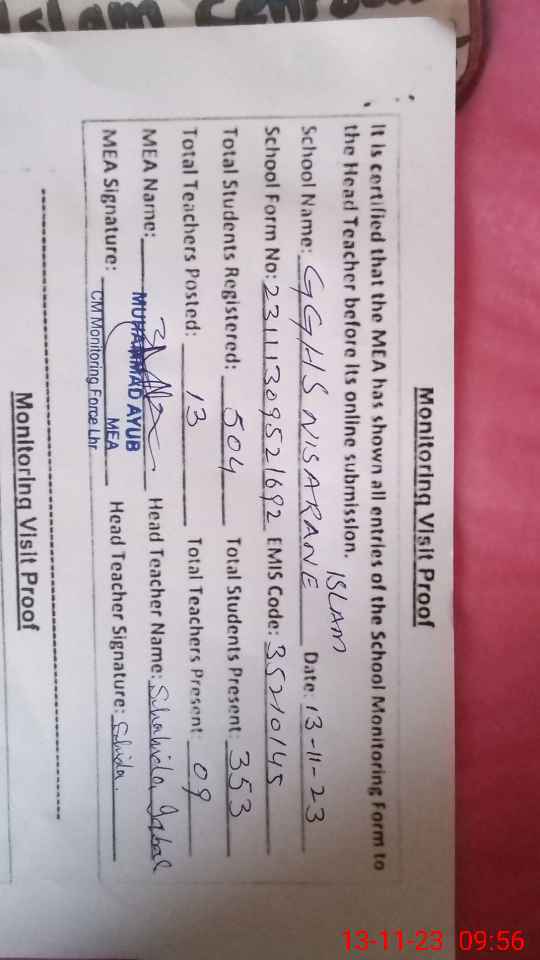 Islam Centra
Monitoring Visit Proof
It is certified that the MEA has shown all entries of the School Monitoring Form to
the Head Teacher before its online submission.
ISLAM
School Name: GGHS NISARANE Date: 13-11-23
School Form No: EMIS Code: 35210145
Total Students Registered: 504 Total Students Present: 353
Total Teachers Posted: 13 Total Teachers Present: 09
MEA Name: Head Teacher Name: Iqbal
MUHAMMAD AYUB
MEA
MEA Signature: Head Teacher Signature:
CM Monitoring Force Lhr
Monitoring Visit Proof
13-11-23 09:56